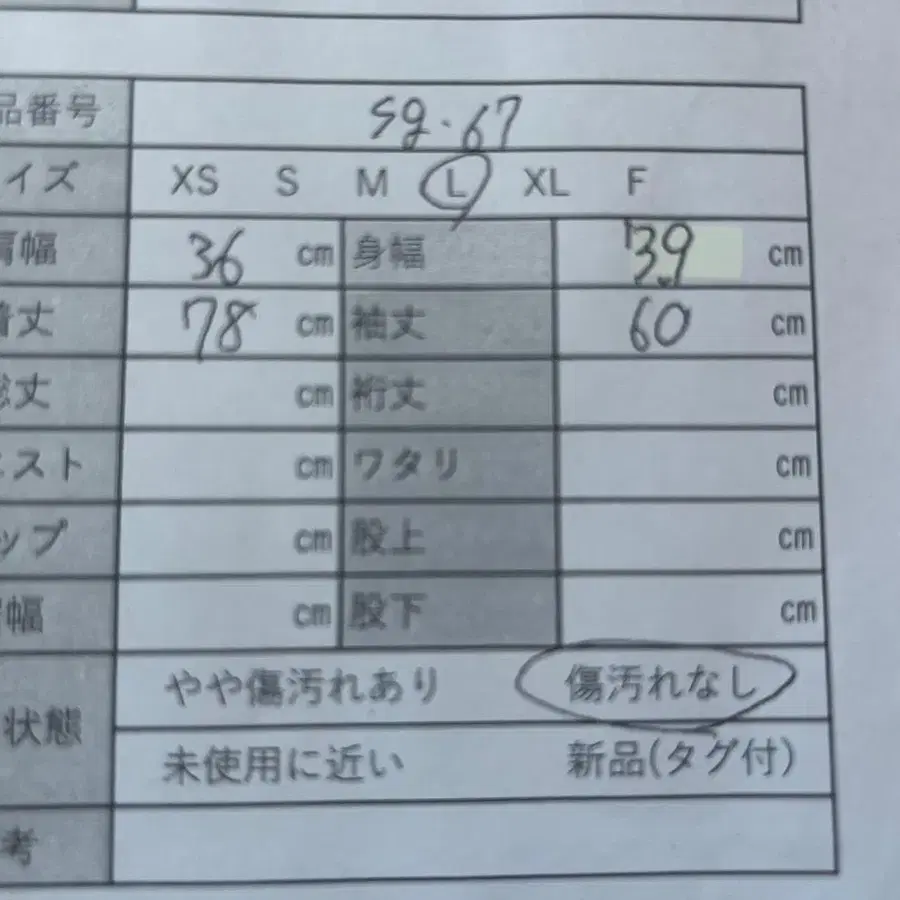 品番号 sg.67
イズ XS S M L XL F
肩幅 36 cm 身幅 39 cm
着丈 78 cm 袖丈 60 cm
総丈 cm 裄丈 cm
エスト cm ワタリ cm
ップ cm 股上 cm
幅 cm 股下 cm
やや傷汚れあり 傷汚れなし
状態
未使用に近い 新品(タグ付)
考